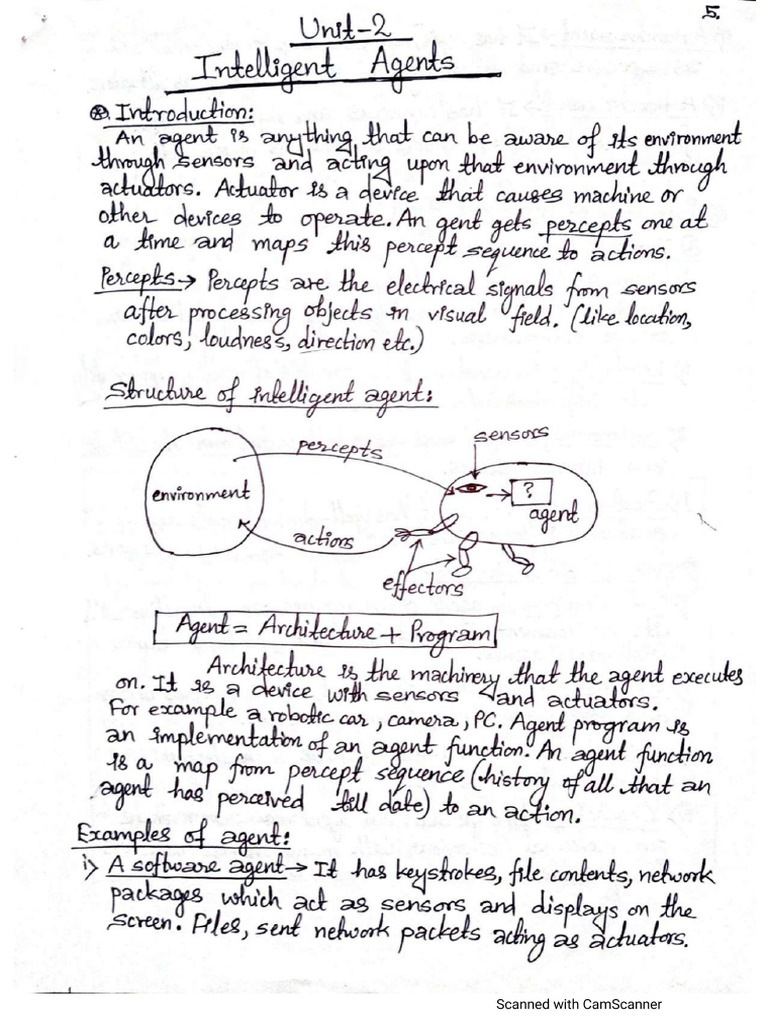 5.
Unit-2
Intelligent Agents
⊛. Introduction:
An agent is anything that can be aware of its environment
through sensors and acting upon that environment through
actuators. Actuator is a device that causes machine or
other devices to operate. An gent gets percepts one at
a time and maps this percept sequence to actions.
Percepts→ Percepts are the electrical signals from sensors
after processing objects in visual field. (like location,
colors, loudness, direction etc.)
Structure of intelligent agent:
sensors
percepts
environment
?
agent
actions
effectors
Agent = Architecture + Program
Architecture is the machinery that the agent executes
on. It is a device with sensors and actuators.
For example a robotic car, camera, PC. Agent program is
an implementation of an agent function. An agent function
is a map from percept sequence (history of all that an
agent has perceived till date) to an action.
Examples of agent:
i> A software agent→ It has keystrokes, file contents, network
packages which act as sensors and displays on the
screen. Files, sent network packets acting as actuators.
Scanned with CamScanner